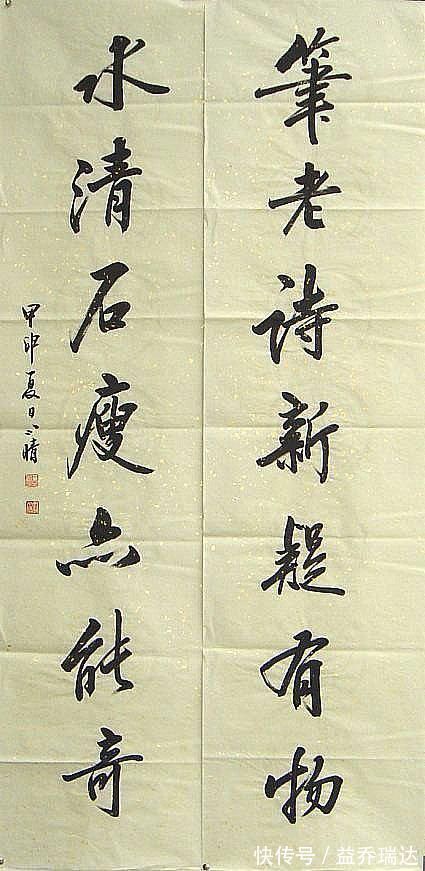 筆老诗新疑有物
水清石瘦亦能奇
甲申夏日
快传号/益乔瑞达